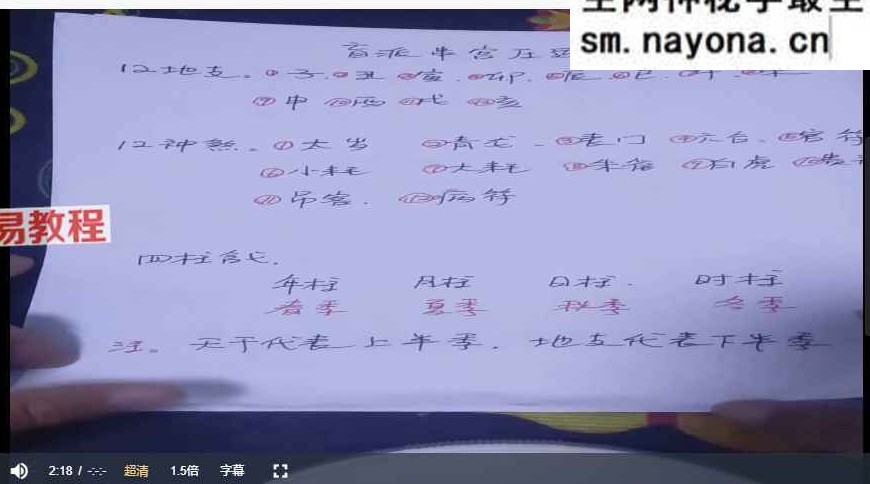 全网神秘学最全
sm.nayona.cn
盲派半宫压
12地支。①子.②丑.③寅.④卯.⑤辰.⑥巳.⑦午.⑧未
⑨申 ⑩酉 ⑪戌 ⑫亥
12神煞。①太岁 ②青龙. ③丧门 ④六合. ⑤官符
⑥小耗 ⑦大耗 ⑧朱雀 ⑨白虎 ⑩贵神
⑪吊客. ⑫病符
易教程
四柱含义.
年柱 月柱 日柱. 时柱
春季 夏季 秋季 冬季
注。天干代表上半季.地支代表下半季
2:18 / -:-:- 超清 1.5倍 字幕